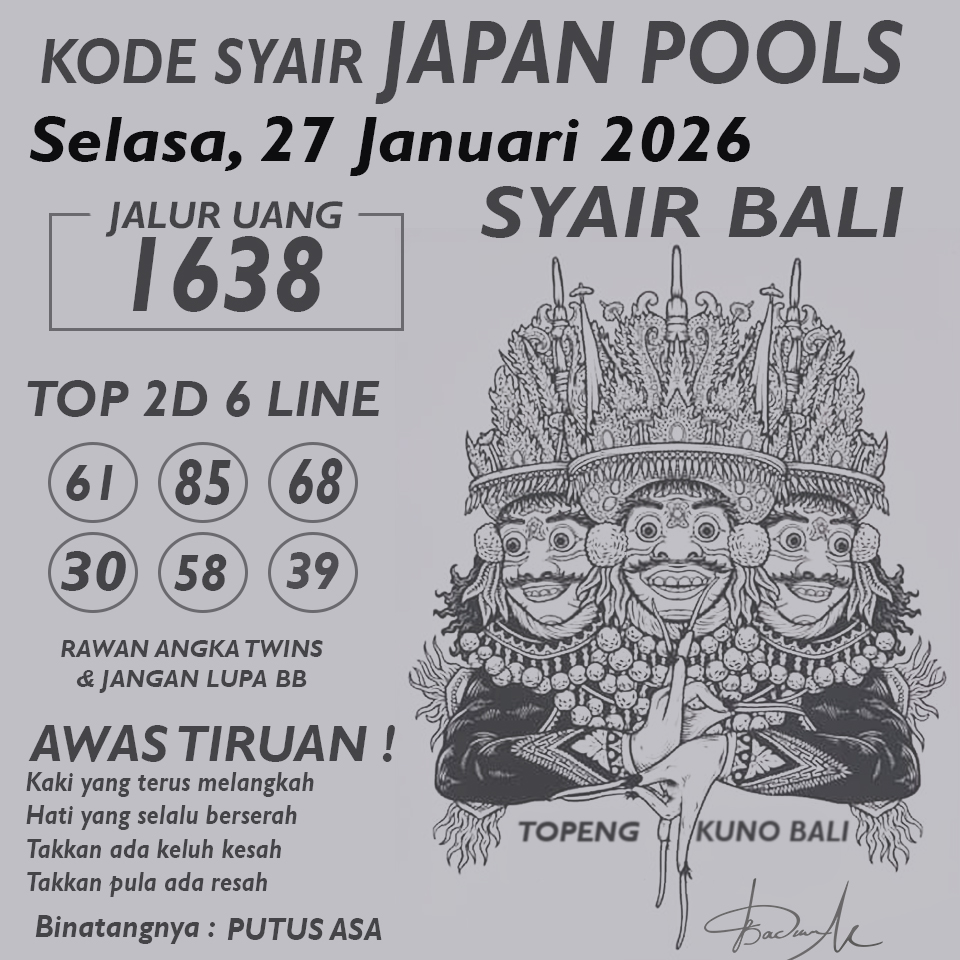 KODE SYAIR JAPAN POOLS
Selasa, 27 Januari 2026
SYAIR BALI
JALUR UANG
1638
TOP 2D 6 LINE
61 85 68
30 58 39
RAWAN ANGKA TWINS
& JANGAN LUPA BB
AWAS TIRUAN !
Kaki yang terus melangkah
Hati yang selalu berserah
Takkan ada keluh kesah
Takkan pula ada resah
Binatangnya : PUTUS ASA
TOPENG KUNO BALI